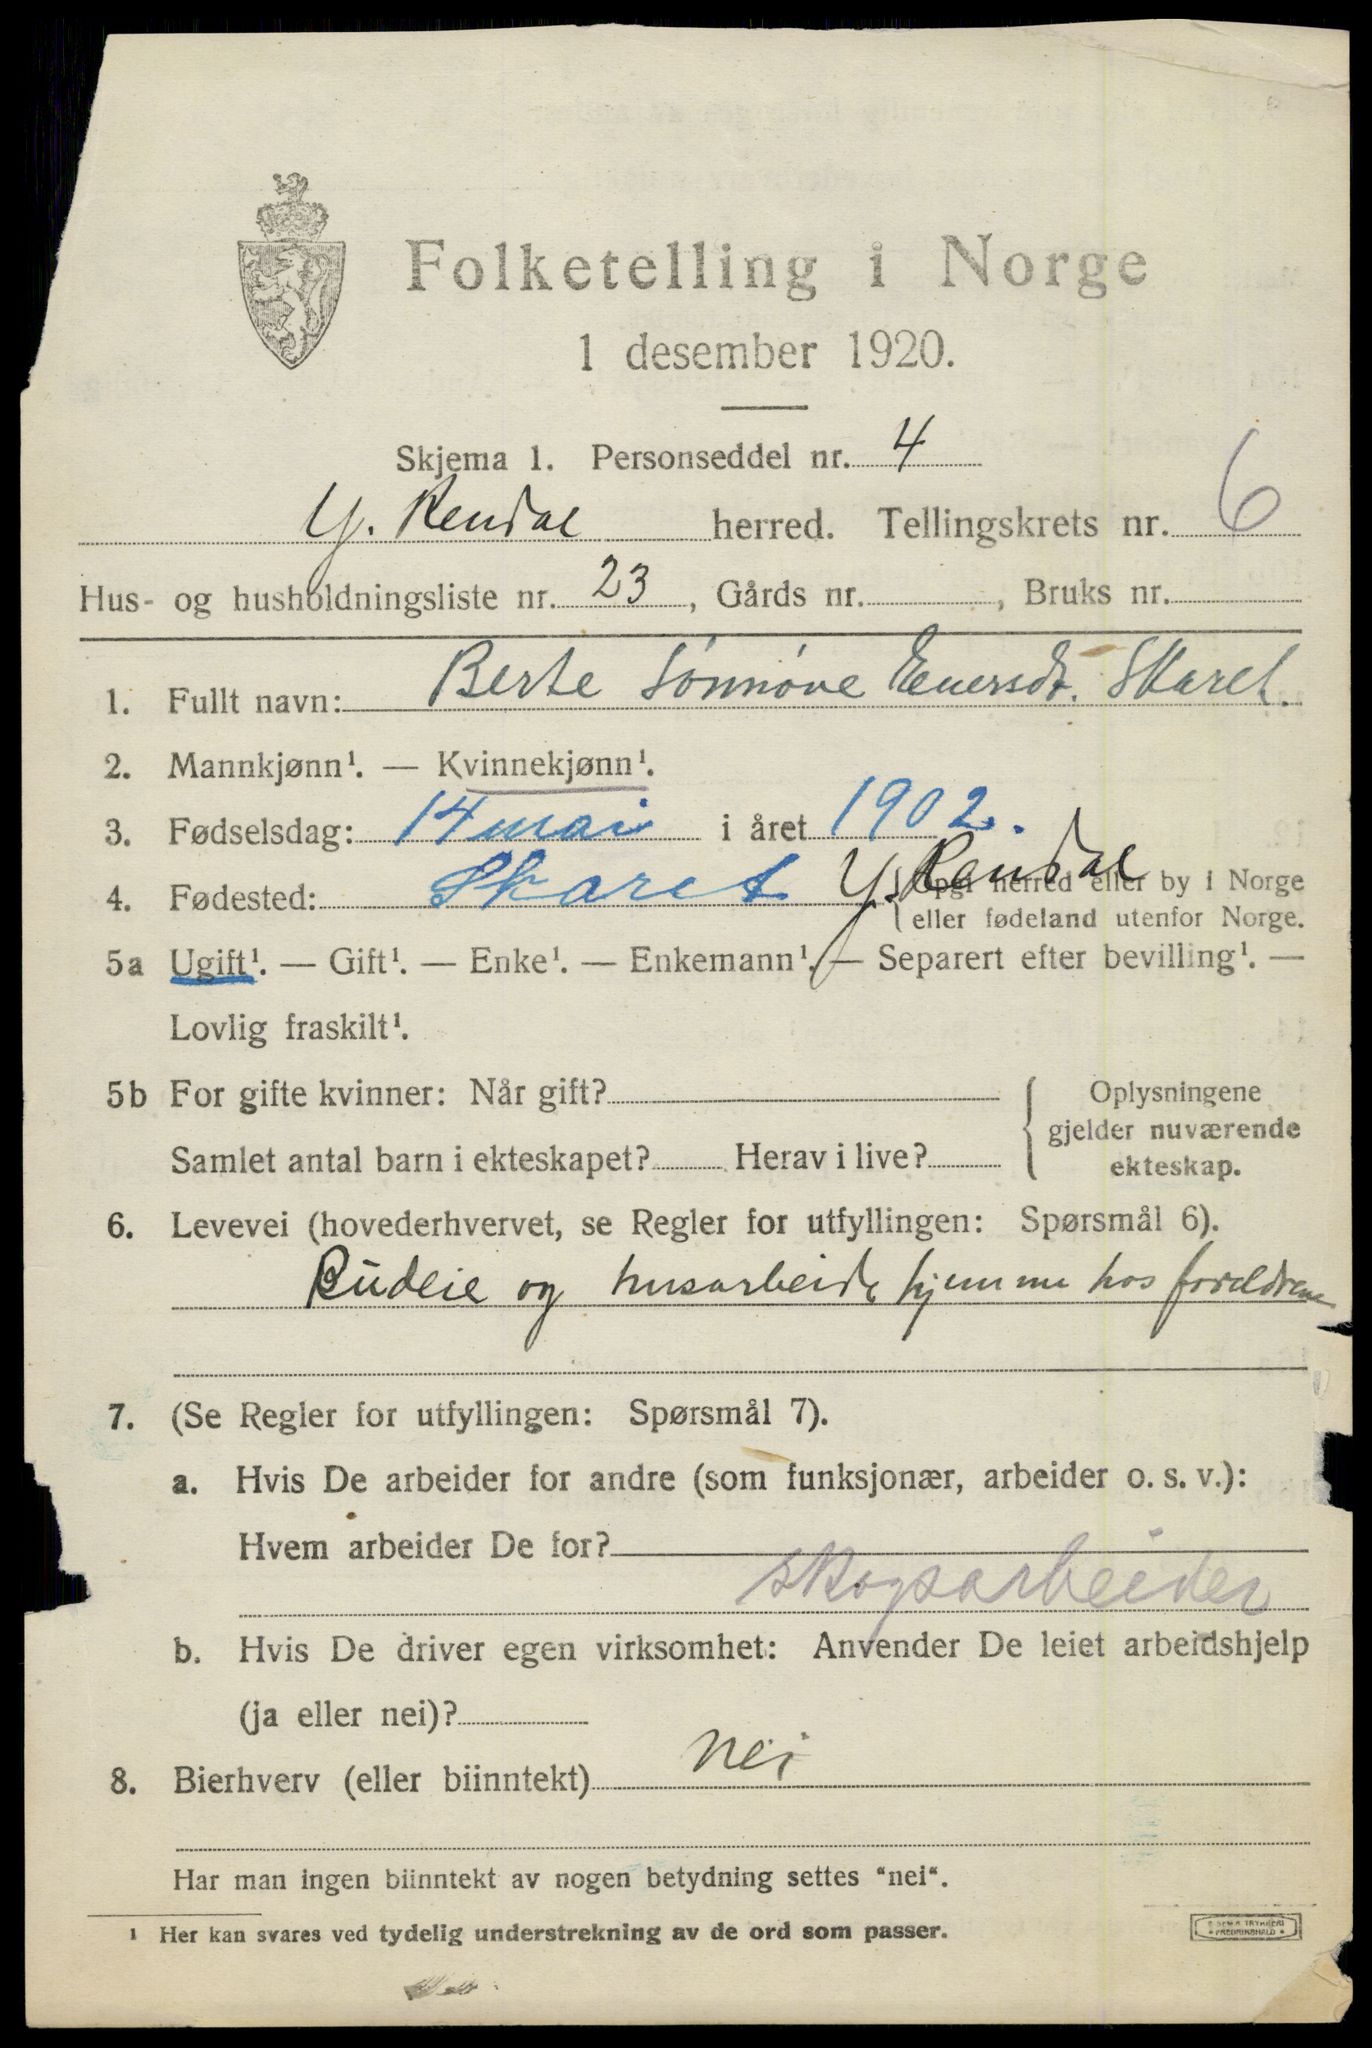 Folketelling i Norge
1 desember 1920.
Skjema 1. Personseddel nr. 4
Y. Rendal herred. Tellingskrets nr. 6
Hus- og husholdningsliste nr. 23, Gårds nr. , Bruks nr.
1. Fullt navn: Berte Sønnøve Enersdt. Skaret.
2. Mannkjønn¹. — Kvinnekjønn¹.
3. Fødselsdag: 14 mai i året 1902.
4. Fødested: Skaret Y. Rendal {Opgi herred eller by i Norge
eller fødeland utenfor Norge.
5a Ugift¹. — Gift¹. — Enke¹. — Enkemann¹. — Separert efter bevilling¹. —
Lovlig fraskilt¹.
5b For gifte kvinner: Når gift? { Oplysningene
gjelder nuværende
Samlet antal barn i ekteskapet? Herav i live? ekteskap.
6. Levevei (hovederhvervet, se Regler for utfyllingen: Spørsmål 6).
Budeie og husarbeide hjemme hos foreldrene
7. (Se Regler for utfyllingen: Spørsmål 7).
a. Hvis De arbeider for andre (som funksjonær, arbeider o. s. v.):
Hvem arbeider De for?
skogsarbeider
b. Hvis De driver egen virksomhet: Anvender De leiet arbeidshjelp
(ja eller nei)?
8. Bierhverv (eller biinntekt) nei
Har man ingen biinntekt av nogen betydning settes "nei".
¹ Her kan svares ved tydelig understrekning av de ord som passer.
TRYKKERI
FREDRIKSHALD